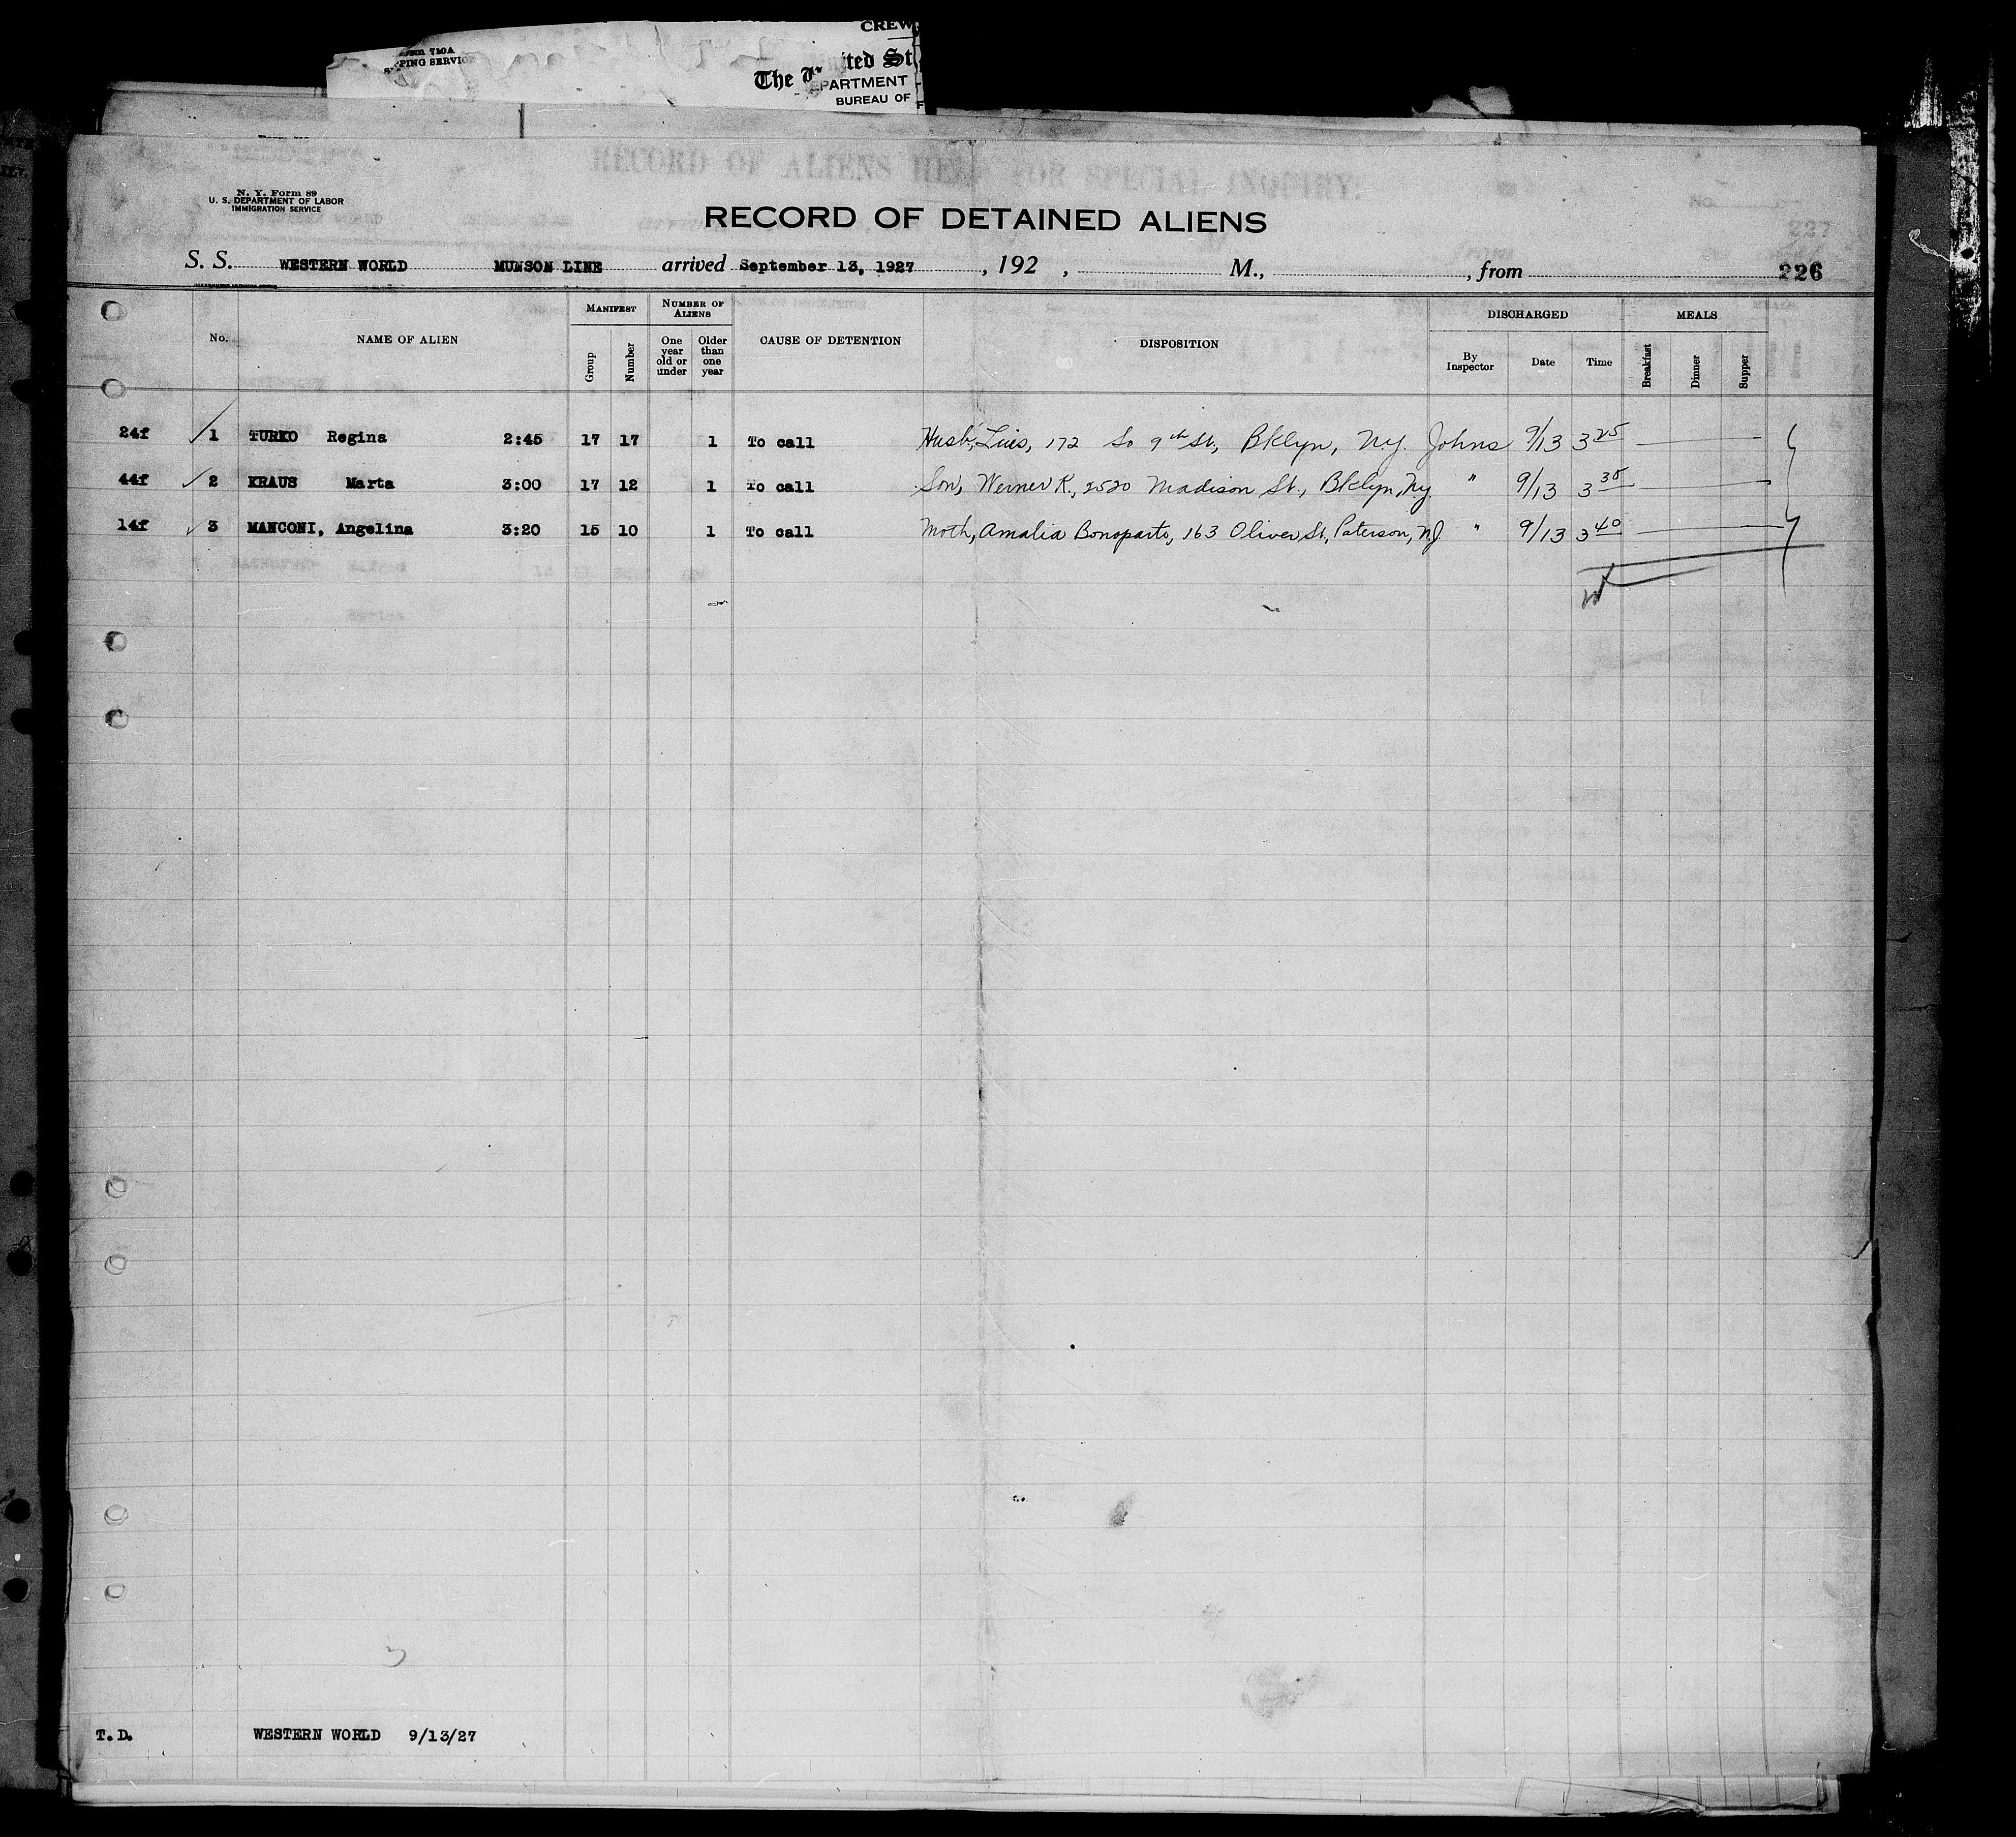 CREW
The United St
PARTMENT
BUREAU OF
PPING SERVIC
RECORD OF ALIENS HELD FOR SPECIAL INQUIRY.
N. Y. Form 89
U. S. DEPARTMENT OF LABOR
IMMIGRATION SERVICE
RECORD OF DETAINED ALIENS
No.
227
S. S. WESTERN WORLD MUNSON LINE arrived September 13, 1927, 192 , M., , from 226
No. NAME OF ALIEN MANIFEST Group Number NUMBER OF ALIENS One year old or under Older than one year CAUSE OF DETENTION DISPOSITION DISCHARGED By Inspector Date Time MEALS Breakfast Dinner Supper
24f 1 TURKO Regina 2:45 17 17 1 To call Husb, Luis, 172 So 9th St., Bklyn, N.Y. Johns 9/13 3 25
44f 2 KRAUS Marta 3:00 17 12 1 To call Son, Werner K., 2520 Madison St., Bklyn, N.Y. " 9/13 3 35
14f 3 MANCONI, Angelina 3:20 15 10 1 To call Moth, Amalia Bonoparto, 163 Oliver St, Paterson, N.J. " 9/13 3 40
T.D. WESTERN WORLD 9/13/27